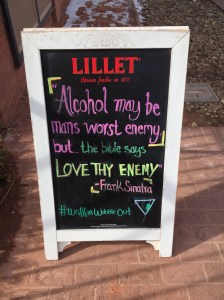 LILLET
Maison fondée en 1872
"Alcohol may be
mans worst enemy,
but the bible says
LOVE THY ENEMY"
-Frank Sinatra
#WalkinWobbleOut